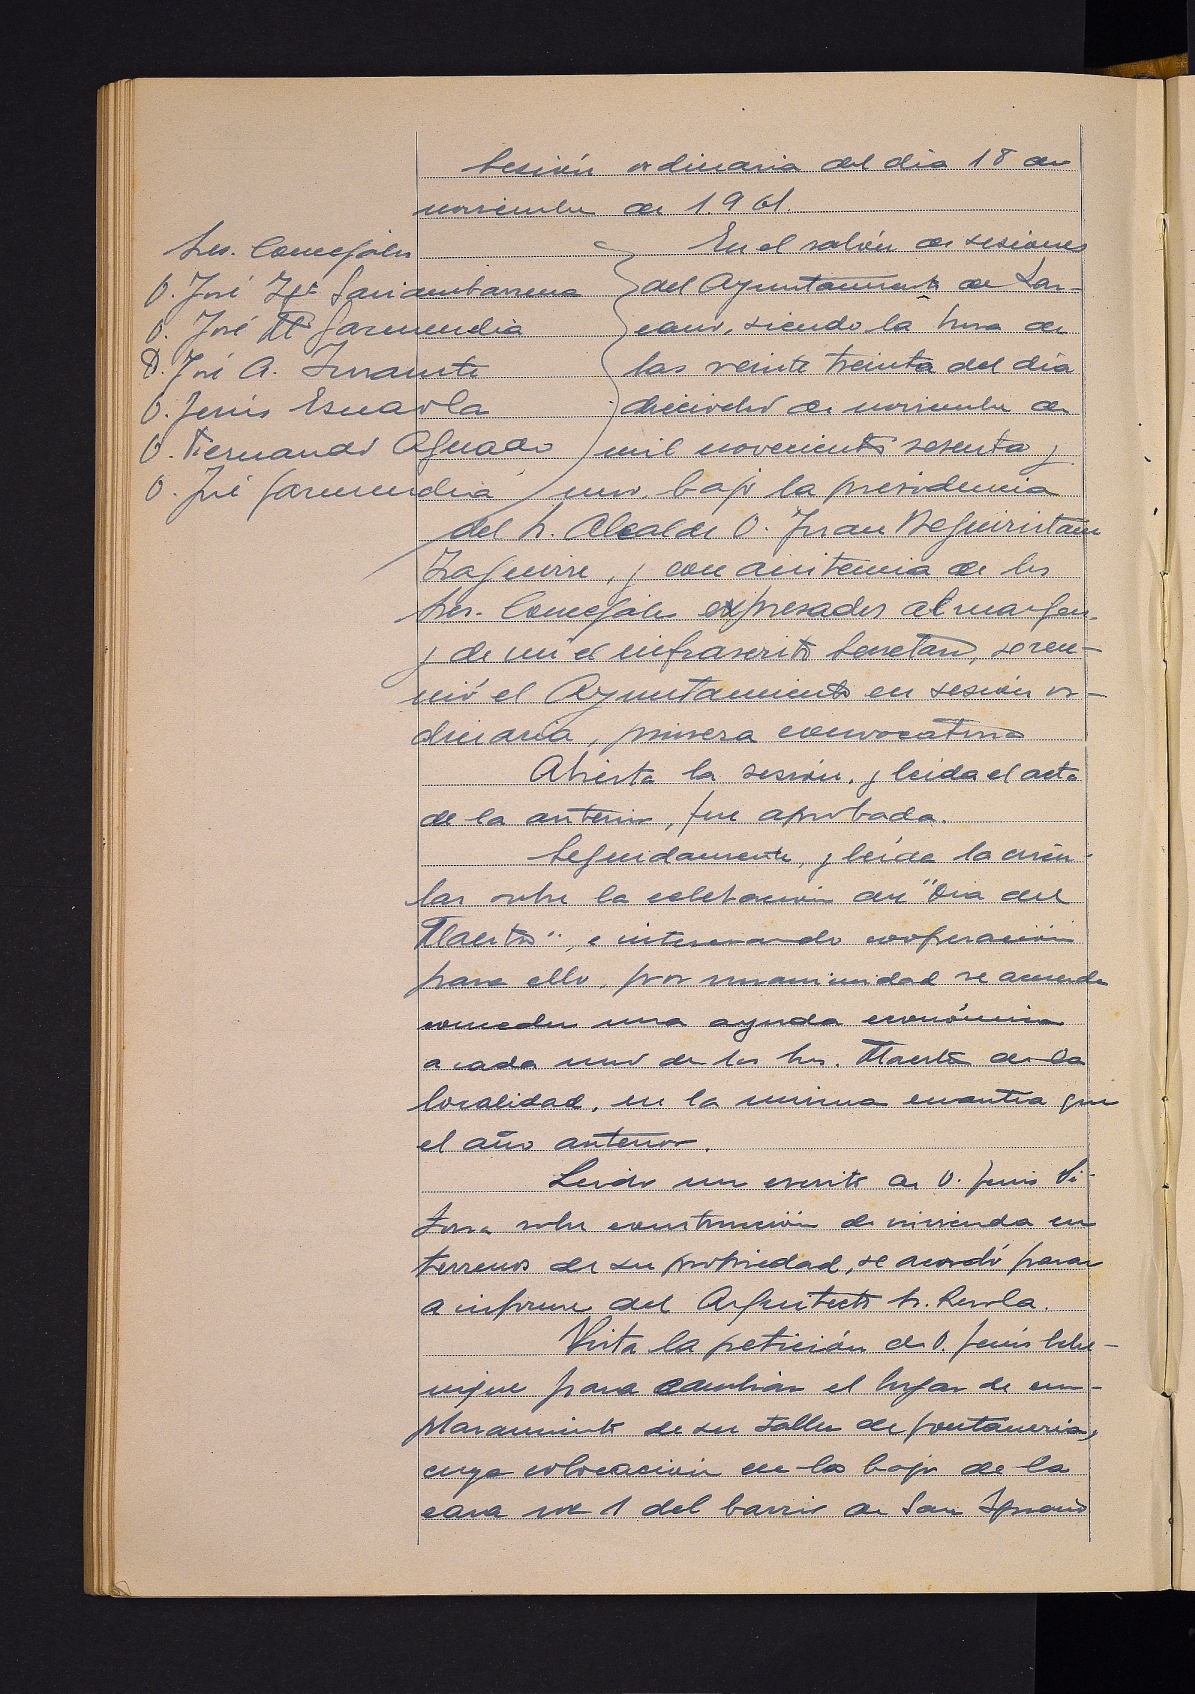 Sesión ordinaria del día 18 de
noviembre de 1.961.
Sres. Concejales
D. José Igº Garicanbarrena
D. José Mª Garmendia
D. José A. Iturrante
D. Jesús Esnaola
D. Fernando Aguado
D. José Garmendia
En el salón de sesiones
del Ayuntamiento de Laz-
cano, siendo la hora de
las veinte treinta del día
dieciocho de noviembre de
mil novecientos sesenta y
uno, bajo la presidencia
del Sr. Alcalde D. Juan Beguiristain
Izaguirre, y con asistencia de los
Sres. Concejales expresados al margen,
y de mi el infrascrito Secretario, se reu-
nió el Ayuntamiento en sesión or-
dinaria, primera convocatoria
Abierta la sesión, y leida el acta
de la anterior, fue aprobada.
Seguidamente, y leída la circu-
lar sobre la celebración del "Dia del
Maestro", e interesando cooperación
para ello, por unanimidad se acuerda
conceder una ayuda económica
a cada uno de los Sres. Maestros de la
localidad, en la misma cuantia que
el año anterior.
Leido un escrito de D. Jesús Vi-
toria sobre construcción de vivienda en
terrenos de su propiedad, se acordó pasar
a informe del Arquitecto Sr.
Vista la petición de D. Jesús Eche-
nique para cambiar el lugar de em-
plazamiento de su taller de fontaneria,
cuya colocación en los bajos de la
casa nº 1 del barrio de San Ignacio